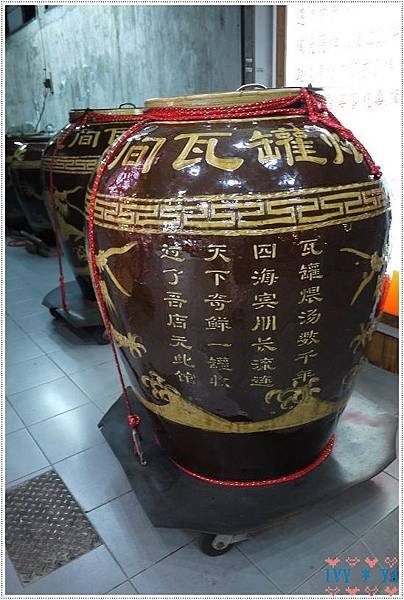 州罐瓦間
瓦罐煨汤数千年
四海宾朋长流连
天下奇鲜一罐收
过了吾店无此馆
間
IVY * YA